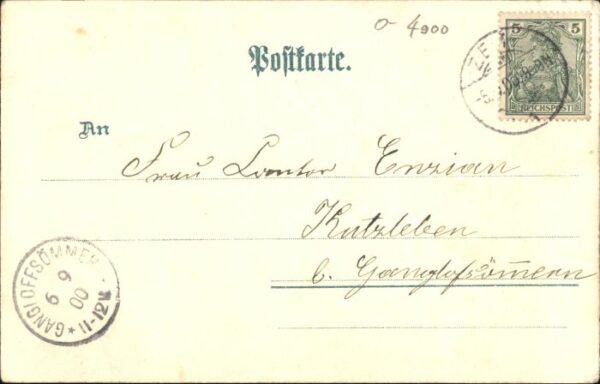 o- 4900
Postkarte.
5 5
REICHSPOST
An
Frau Cantor Enzian
Kutzleben
b. Ganglofsömern
GANGLOFFSÖMMERN
9 6
00
* 11-12